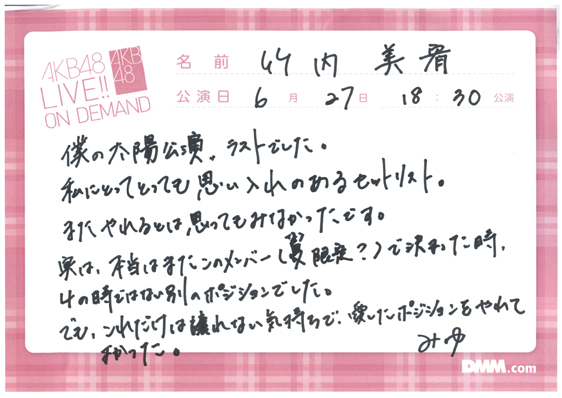 AKB48
LIVE!!
ON DEMAND
AKB
48
名前 竹内美宥
公演日 6月27日 18:30公演
僕の太陽公演。ラストでした。
私にとってとっても思い入れのあるセットリスト。
またやれるとは思ってもみなかったです。
実は、本当はまたこのメンバー(夏限定?)で決まった時、
4の時ではない別のポジションでした。
でも、これだけは譲れない気持ちで、愛したポジションをやれて
よかった。
みゆ
DMM.com